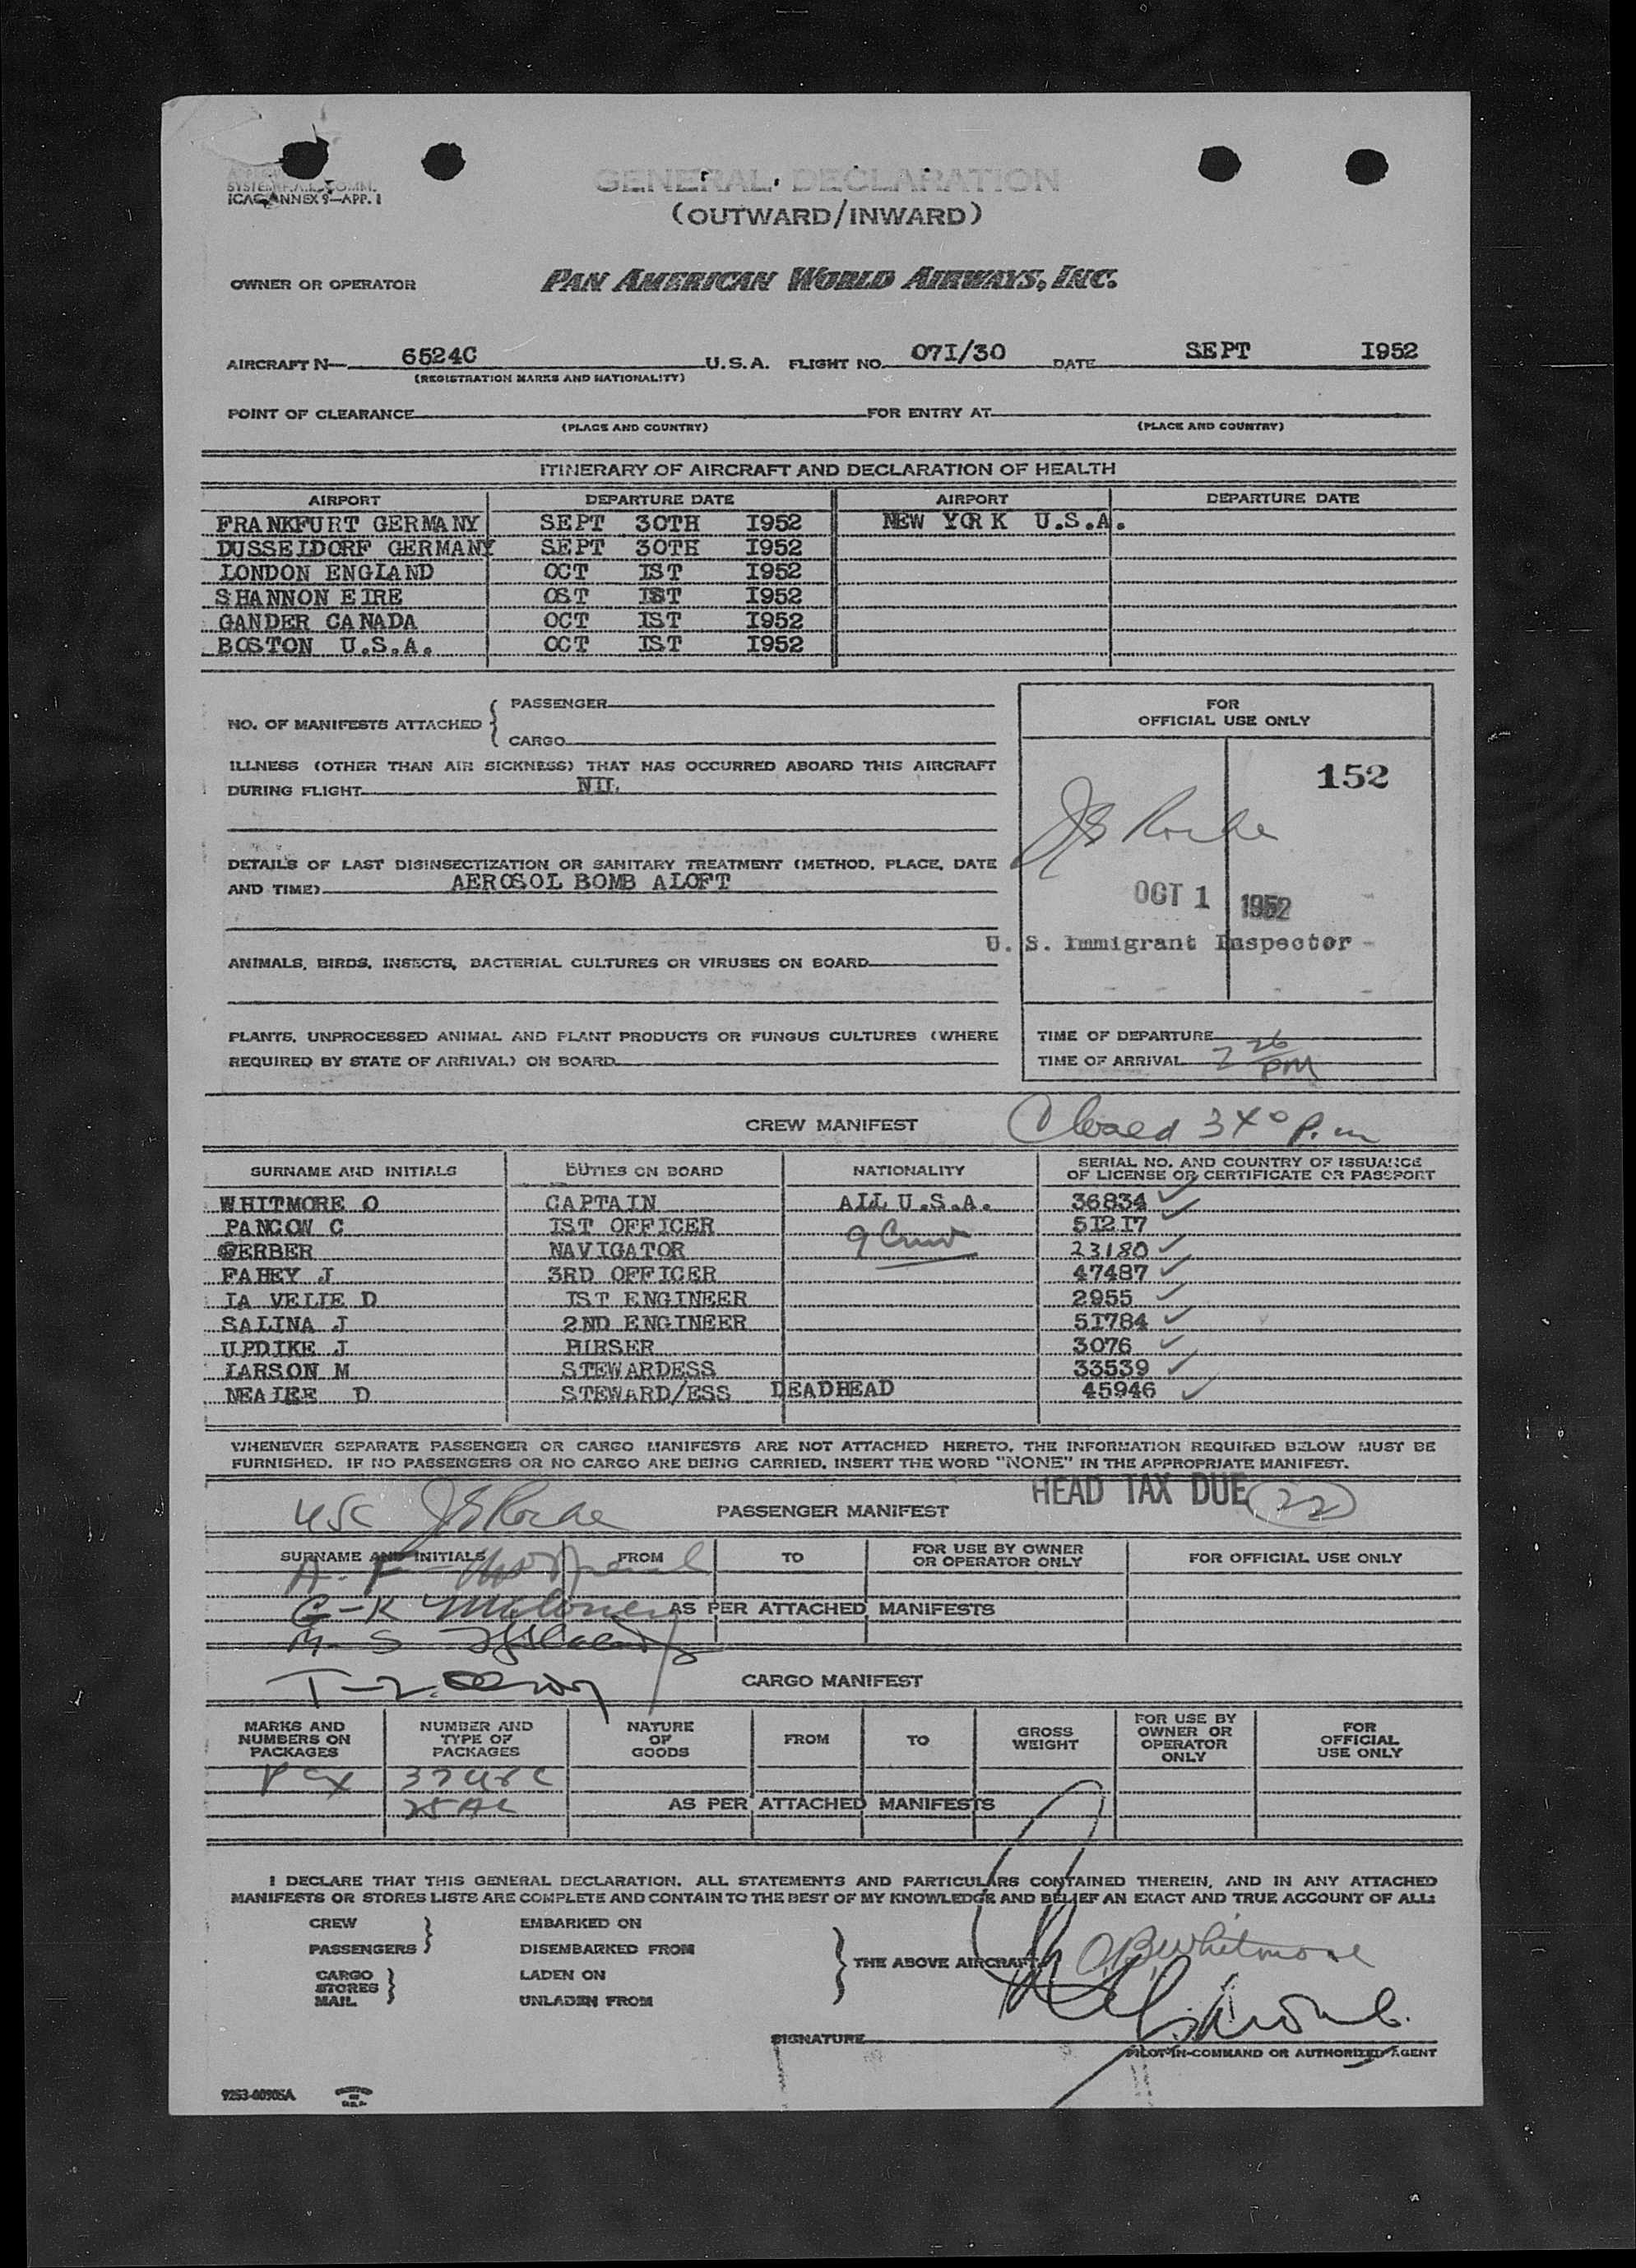 SYSTEM F.A.L. COMM.
ICAO ANNEX 9—APP. 1
GENERAL DECLARATION
(OUTWARD/INWARD)
OWNER OR OPERATOR PAN AMERICAN WORLD AIRWAYS, INC.
AIRCRAFT N— 6524C U.S.A. FLIGHT NO. 07I/30 DATE SEPT I952
(REGISTRATION MARKS AND NATIONALITY)
POINT OF CLEARANCE FOR ENTRY AT
(PLACE AND COUNTRY) (PLACE AND COUNTRY)
ITINERARY OF AIRCRAFT AND DECLARATION OF HEALTH
AIRPORT DEPARTURE DATE AIRPORT DEPARTURE DATE
FRANKFURT GERMANY SEPT 30TH I952 NEW YORK U.S.A.
DUSSEIDORF GERMANY SEPT 30TH I952
LONDON ENGLAND OCT IST I952
SHANNON EIRE OST IST I952
GANDER CANADA OCT IST I952
BOSTON U.S.A. OCT IST I952
NO. OF MANIFESTS ATTACHED { PASSENGER
CARGO
FOR
OFFICIAL USE ONLY
ILLNESS (OTHER THAN AIR SICKNESS) THAT HAS OCCURRED ABOARD THIS AIRCRAFT
DURING FLIGHT NIL
152
JE Roche
DETAILS OF LAST DISINSECTIZATION OR SANITARY TREATMENT (METHOD, PLACE, DATE
AND TIME) AEROSOL BOMB ALOFT
OCT 1 1952
U. S. Immigrant Inspector
ANIMALS, BIRDS, INSECTS, BACTERIAL CULTURES OR VIRUSES ON BOARD
PLANTS, UNPROCESSED ANIMAL AND PLANT PRODUCTS OR FUNGUS CULTURES (WHERE
REQUIRED BY STATE OF ARRIVAL) ON BOARD
TIME OF DEPARTURE
TIME OF ARRIVAL 2 26 PM
CREW MANIFEST Closed 340 P.m
SURNAME AND INITIALS DUTIES ON BOARD NATIONALITY SERIAL NO. AND COUNTRY OF ISSUANCE
OF LICENSE OR CERTIFICATE OR PASSPORT
WHITMORE O CAPTAIN ALL U.S.A. 36834
PANCOW C IST OFFICER 9 Crew 5I2I7
GERBER NAVIGATOR 23180
FAHEY J 3RD OFFICER 47487
LA VELIE D IST ENGINEER 2955
SALINA J 2ND ENGINEER 5I784
UPDIKE J PURSER 3076
LARSON M STEWARDESS 33539
NEAIRE D STEWARD/ESS DEADHEAD 45946
WHENEVER SEPARATE PASSENGER OR CARGO MANIFESTS ARE NOT ATTACHED HERETO, THE INFORMATION REQUIRED BELOW MUST BE
FURNISHED. IF NO PASSENGERS OR NO CARGO ARE BEING CARRIED, INSERT THE WORD "NONE" IN THE APPROPRIATE MANIFEST.
HEAD TAX DUE 22
USC JE Roche PASSENGER MANIFEST
SURNAME AND INITIALS FROM TO FOR USE BY OWNER
OR OPERATOR ONLY FOR OFFICIAL USE ONLY
A. F.
G-K Maloney AS PER ATTACHED MANIFESTS
M-S
T-Z CARGO MANIFEST
MARKS AND
NUMBERS ON
PACKAGES NUMBER AND
TYPE OF
PACKAGES NATURE
OF
GOODS FROM TO GROSS
WEIGHT FOR USE BY
OWNER OR
OPERATOR
ONLY FOR
OFFICIAL
USE ONLY
Pax 37 USC
25 AL AS PER ATTACHED MANIFESTS
I DECLARE THAT THIS GENERAL DECLARATION, ALL STATEMENTS AND PARTICULARS CONTAINED THEREIN, AND IN ANY ATTACHED
MANIFESTS OR STORES LISTS ARE COMPLETE AND CONTAIN TO THE BEST OF MY KNOWLEDGE AND BELIEF AN EXACT AND TRUE ACCOUNT OF ALL:
CREW EMBARKED ON
PASSENGERS DISEMBARKED FROM
CARGO LADEN ON
STORES
MAIL UNLADEN FROM
THE ABOVE AIRCRAFT O.B. Whitmore
SIGNATURE
PILOT-IN-COMMAND OR AUTHORIZED AGENT
9253-00905A